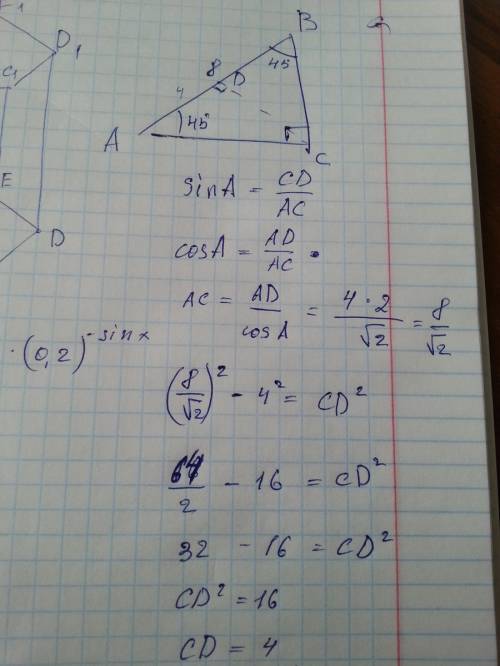 F1
D1
C1
E
D
B
45
8
D
4
45
A
C
sin A = CD/AC
cos A = AD/AC
AC = AD/cos A = 4·2/√2 = 8/√2
·(0,2)^-sin x
(8/√2)² - 4² = CD²
64/2 - 16 = CD²
32 - 16 = CD²
CD² = 16
CD = 4